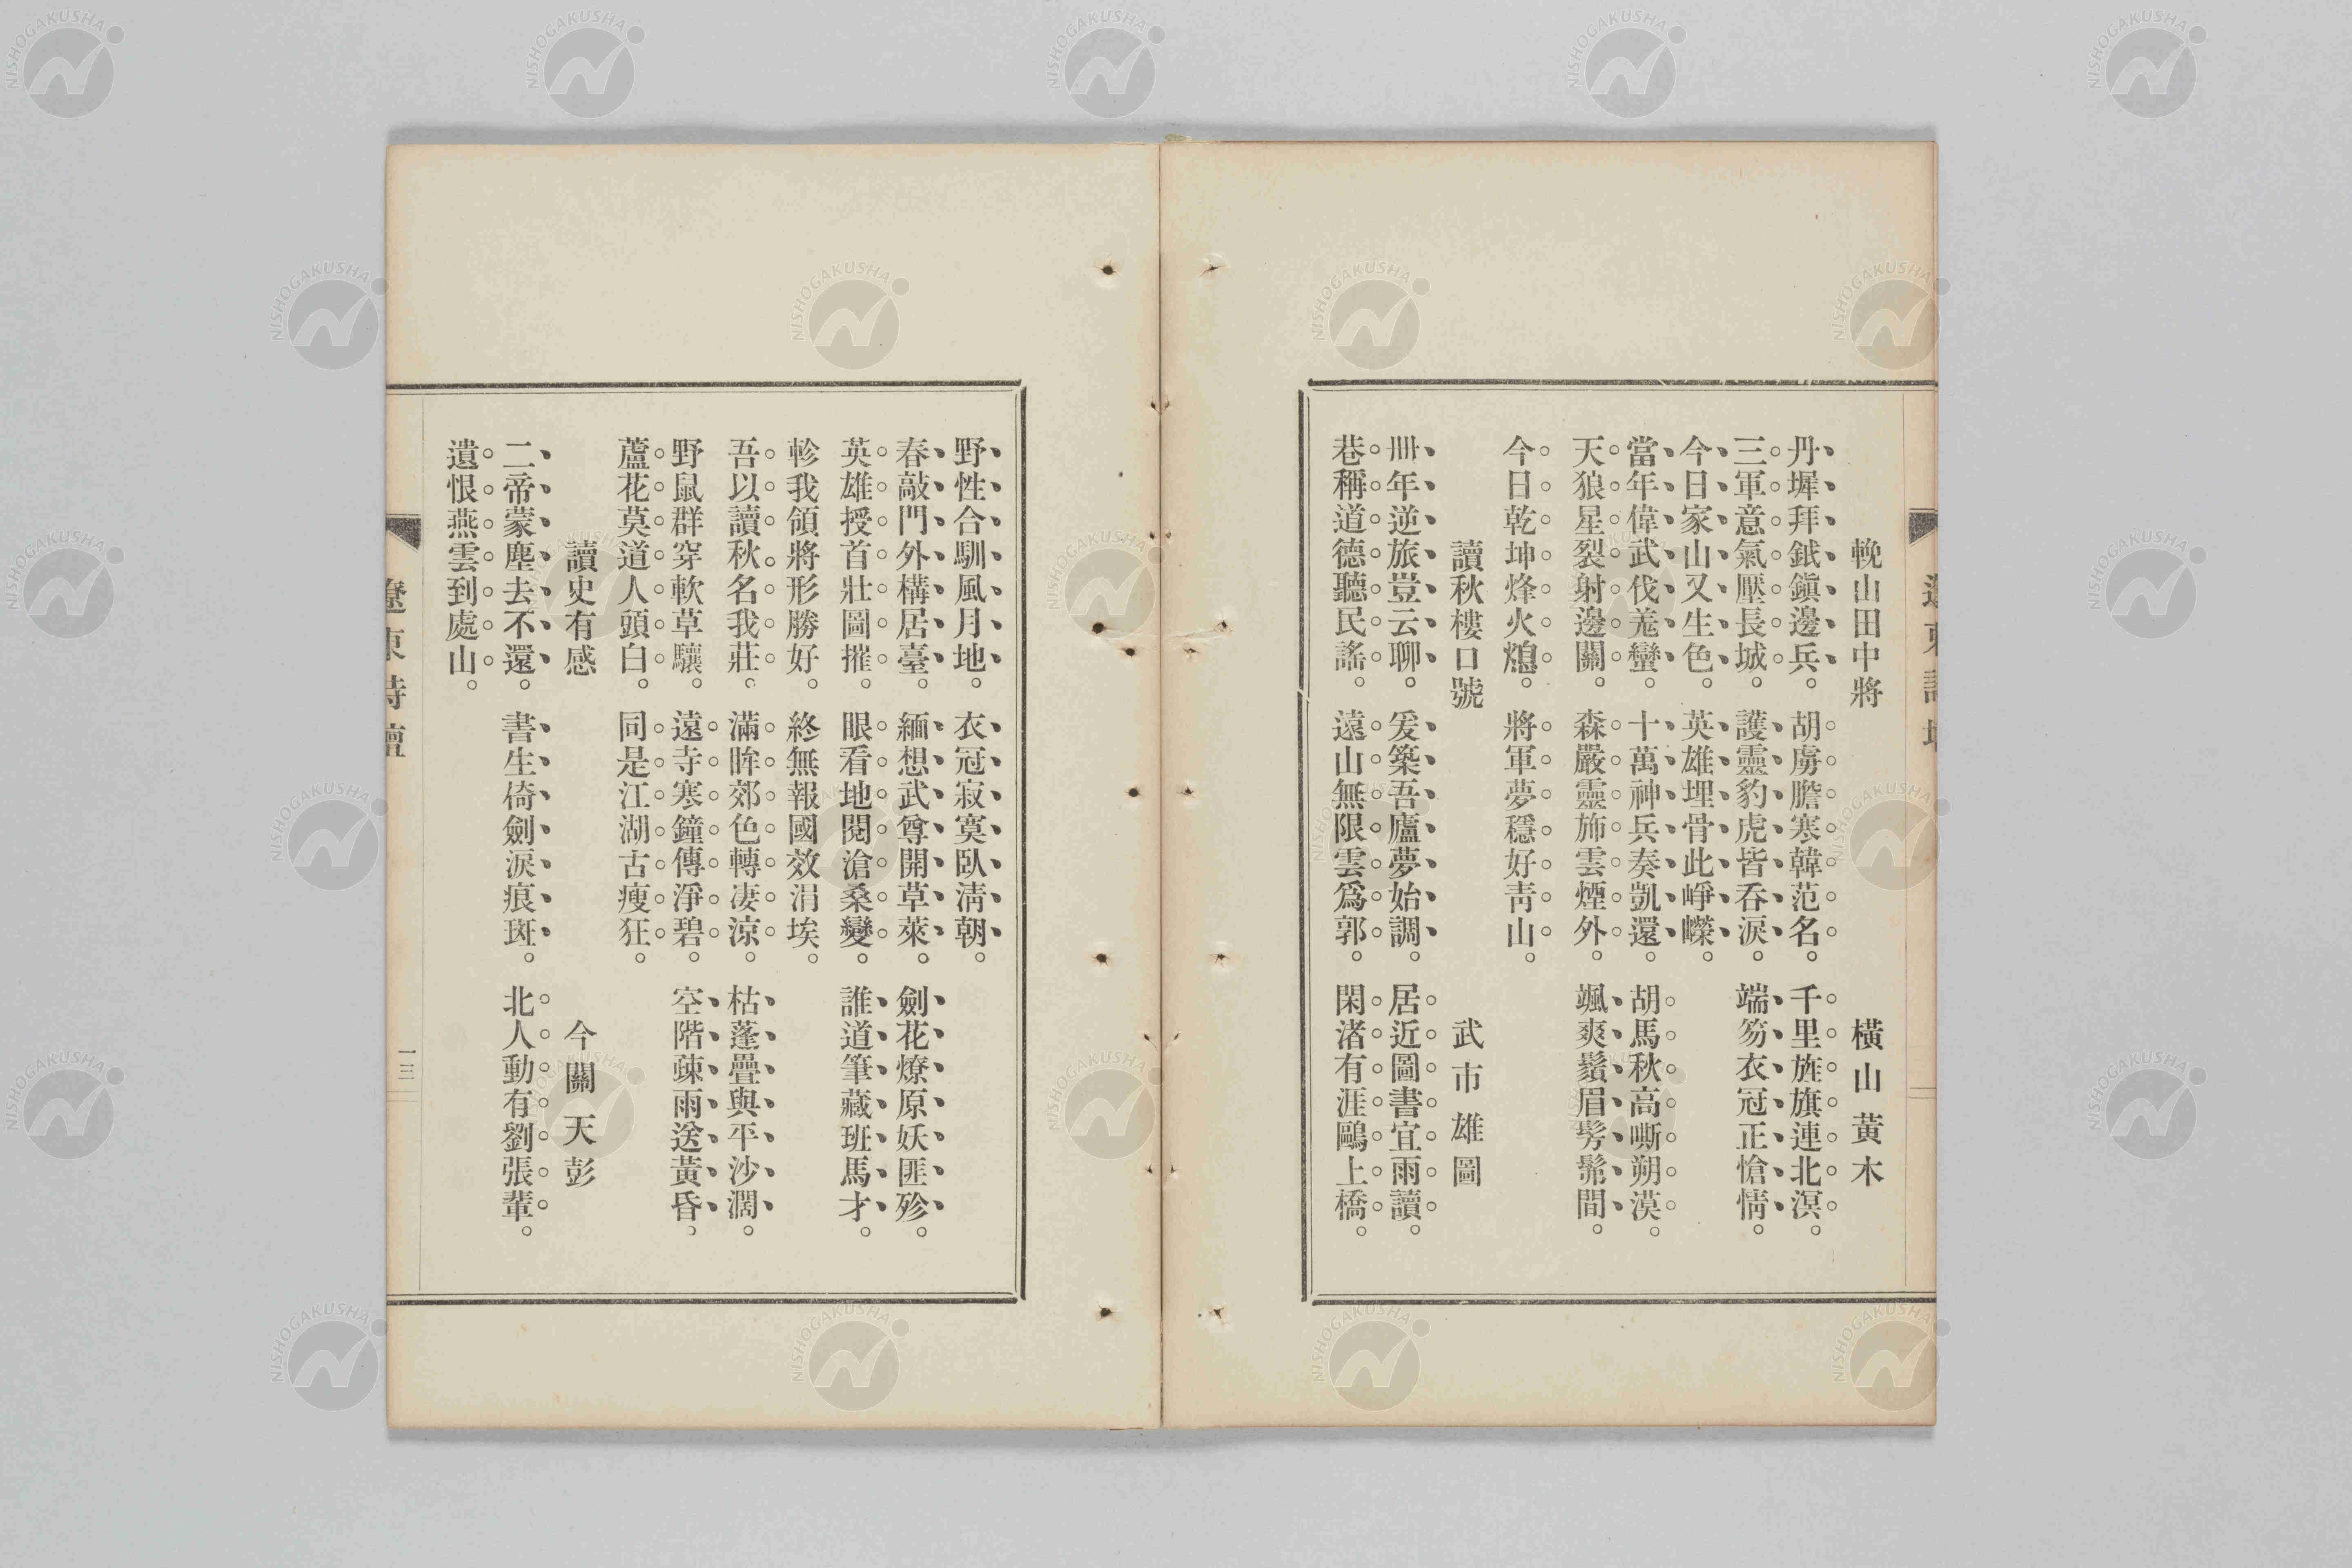 輓山田中將　橫山黃木
丹墀拜鉞鎭邊兵。胡虜膽寒韓范名。千里旌旗連北溟。
三軍意氣壓長城。護靈豹虎皆吞淚。端笏衣冠正愴情。
今日家山又生色。英雄埋骨此崢嶸。
當年偉武伐羌蠻。十萬神兵奏凱還。胡馬秋高嘶朔漠。
天狼星裂射邊關。森嚴靈斾雲煙外。颯爽鬚眉髣髴間。
今日乾坤烽火熄。將軍夢穩好靑山。
讀秋樓口號　武市雄圖
卌年逆旅豈云聊。爰築吾廬夢始調。居近圖書宜雨讀。
巷稱道德聽民謠。遠山無限雲爲郭。閑渚有涯鷗上橋。
野性合馴風月地。衣冠寂寞臥淸朝。
春敲門外構居臺。緬想武尊開草萊。劍花燎原妖匪殄。
英雄授首壯圖摧。眼看地閱滄桑變。誰道筆藏班馬才。
軫我領將形勝好。終無報國效涓埃。
吾以讀秋名我莊。滿眸郊色轉凄涼。枯蓬疊與平沙濶。
野鼠群穿軟草驤。遠寺寒鐘傳淨碧。空階疎雨送黃昏。
蘆花莫道人頭白。同是江湖古瘦狂。
讀史有感　今關天彭
二帝蒙塵去不還。書生倚劍淚痕斑。北人動有劉張輩。
遺恨燕雲到處山。
遼東詩壇
一三
NISHOGAKUSHA